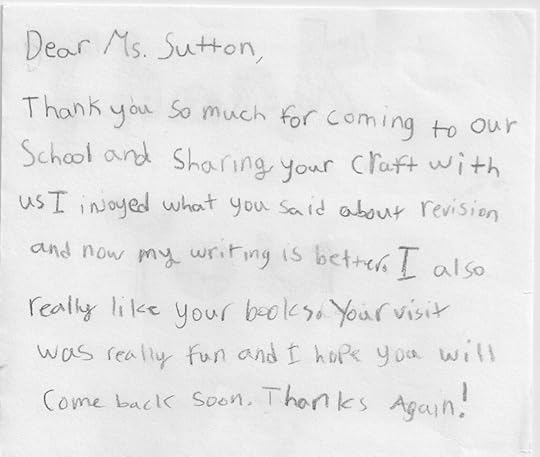 Dear Ms. Sutton,
Thank you so much for coming to our
School and Sharing your Craft with
us I injoyed what you said about revision
and now my writing is better. I also
really like your books. Your visit
was really fun and I hope you will
Come back Soon. Thanks Again!